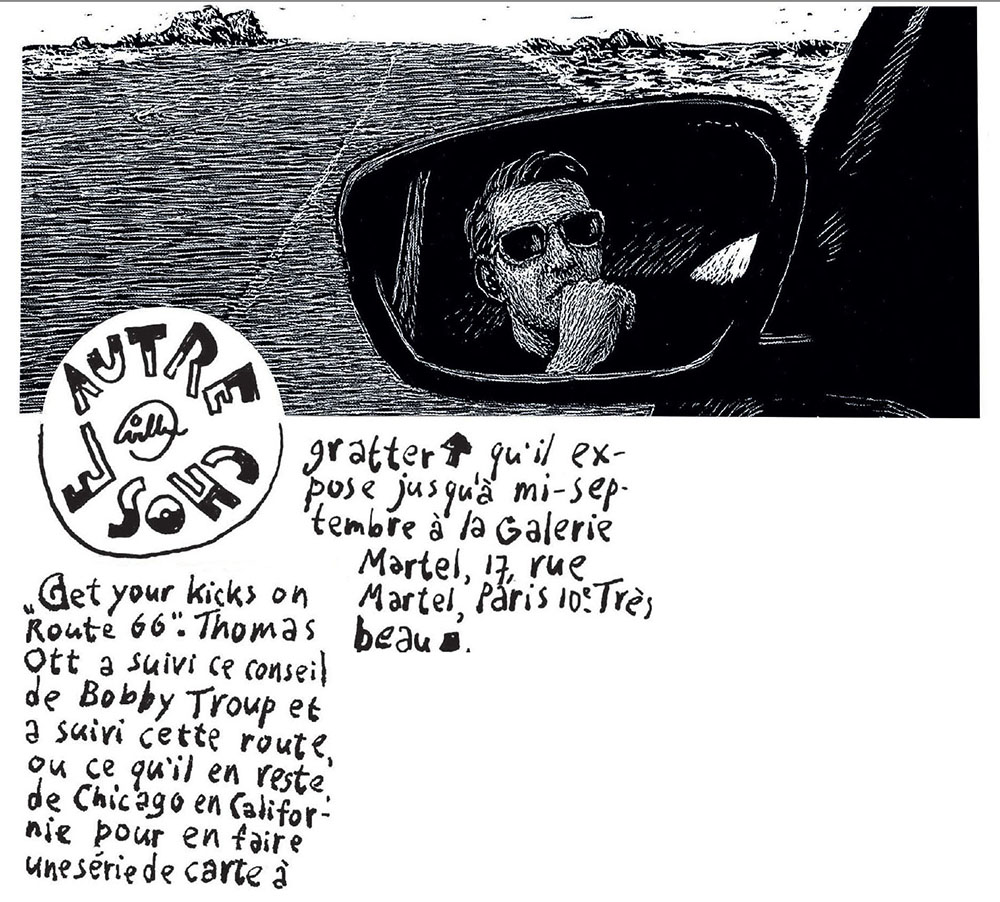 AUTRE
CHOSE
Willem
„Get your kicks on
Route 66". Thomas
Ott a suivi ce conseil
de Bobby Troup et
a suivi cette route,
ou ce qu'il en reste,
de Chicago en Califor-
nie pour en faire
une série de carte à
gratter qu'il ex-
pose jusqu'à mi-sep-
tembre à la Galerie
Martel, 17, rue
Martel, Paris 10e. Très
beau.